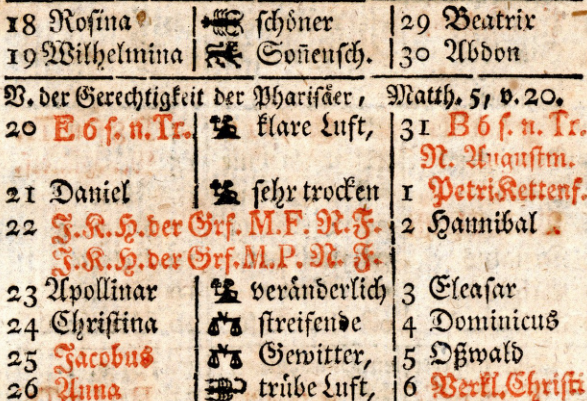 18 Rosina schöner 29 Beatrix
19 Wilhelmina Soñensch. 30 Abdon
V. der Gerechtigkeit der Pharisäer, Matth. 5, v. 20.
20 E 6 s. n. Tr. klare Luft, 31 B 6 s. n. Tr.
N. Augustm.
21 Daniel sehr trocken 1 Petri Kettenf.
22 J. K. H. der Grf. M. F. N. F. 2 Hannibal
J. K. H. der Grf. M. P. N. F.
23 Apollinar veränderlich 3 Eleasar
24 Christina streifende 4 Dominicus
25 Jacobus Gewitter, 5 Oßwald
26 Anna trübe Luft, 6 Verkl. Christi